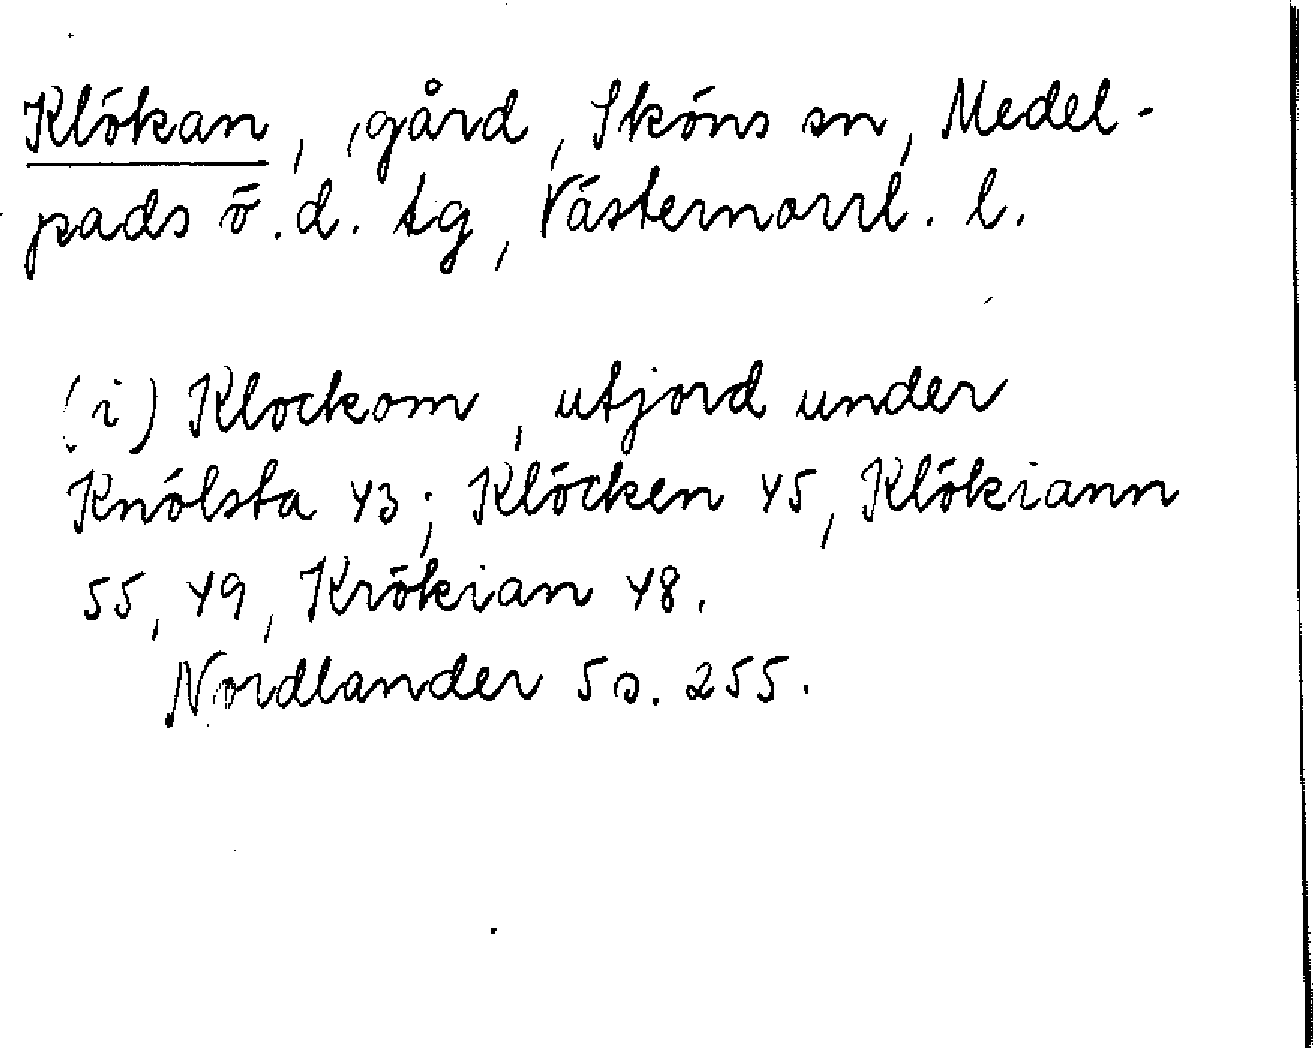 Klökan, gård, Sköns sn, Medel-
pads ö.d. tg, Västernorrl. l.
(i) Klockom, utjord under
Knölsta 43; Klöcken 45, Klökiann
55, 49, Krökian 48.
Nordlander 5 s. 255.